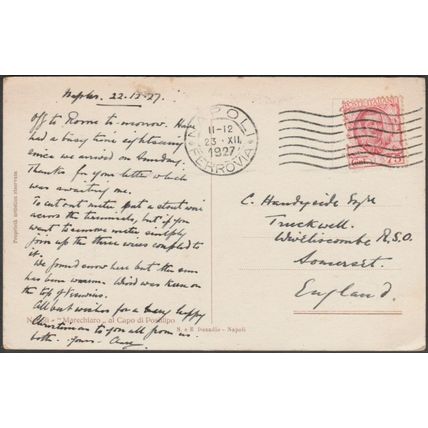 Naples. 22.12.27.
Off to Rome to-morrow. Have
had a busy time sightseeing
since we arrived on Sunday.
Thanks for your letter which
was awaiting me.
To cut out meter put a stout wire
across the terminals, but if you
want to remove meter simply
join up the three wires coupled to
it.
We found snow here but the sun
has been warm. Wind was keen on
the top of Vesuvius.
All best wishes for a very happy
Christmas to you all from us
both. Yours -
NAPOLI
FERROVIA
11-12
23 · XII
1927
POSTE ITALIANE
75
C. Handyside Esq
Truckwell.
Wiveliscombe R.S.O.
Somerset.
England.
"Marechiaro" al Capo di Posillipo
Napoli
Proprietà artistica riservata